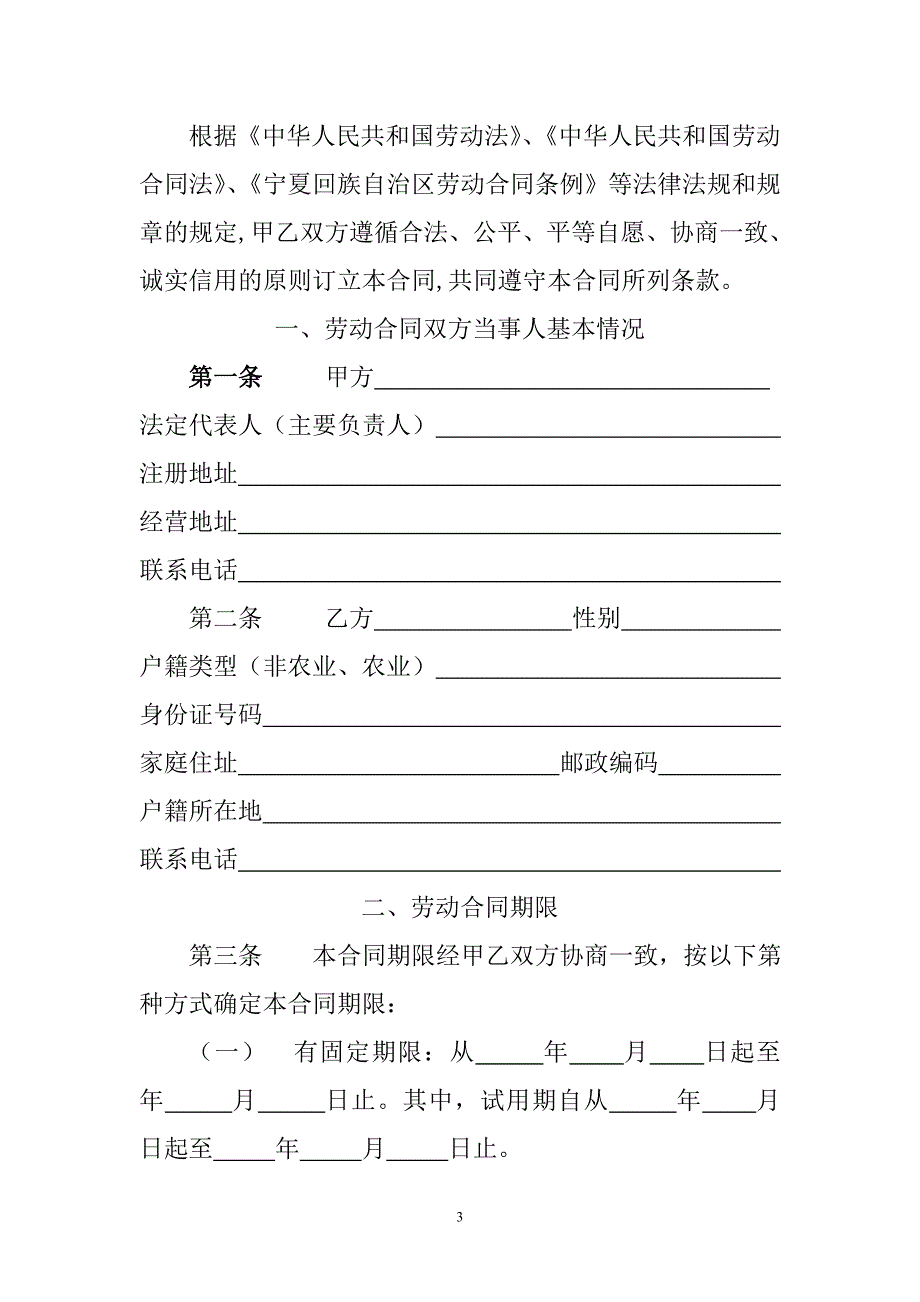 根据《中华人民共和国劳动法》、《中华人民共和国劳动
合同法》、《宁夏回族自治区劳动合同条例》等法律法规和规
章的规定,甲乙双方遵循合法、公平、平等自愿、协商一致、
诚实信用的原则订立本合同,共同遵守本合同所列条款。
一、劳动合同双方当事人基本情况
第一条 甲方________________
法定代表人（主要负责人）______________
注册地址______________________
经营地址______________________
联系电话______________________
第二条 乙方________性别______
户籍类型（非农业、农业）______________
身份证号码_____________________
家庭住址_____________邮政编码_____
户籍所在地_____________________
联系电话______________________
二、劳动合同期限
第三条 本合同期限经甲乙双方协商一致，按以下第
种方式确定本合同期限：
（一） 有固定期限：从_____年____月____日起至
年_____月_____日止。其中，试用期自从_____年____月
日起至_____年_____月_____日止。
3